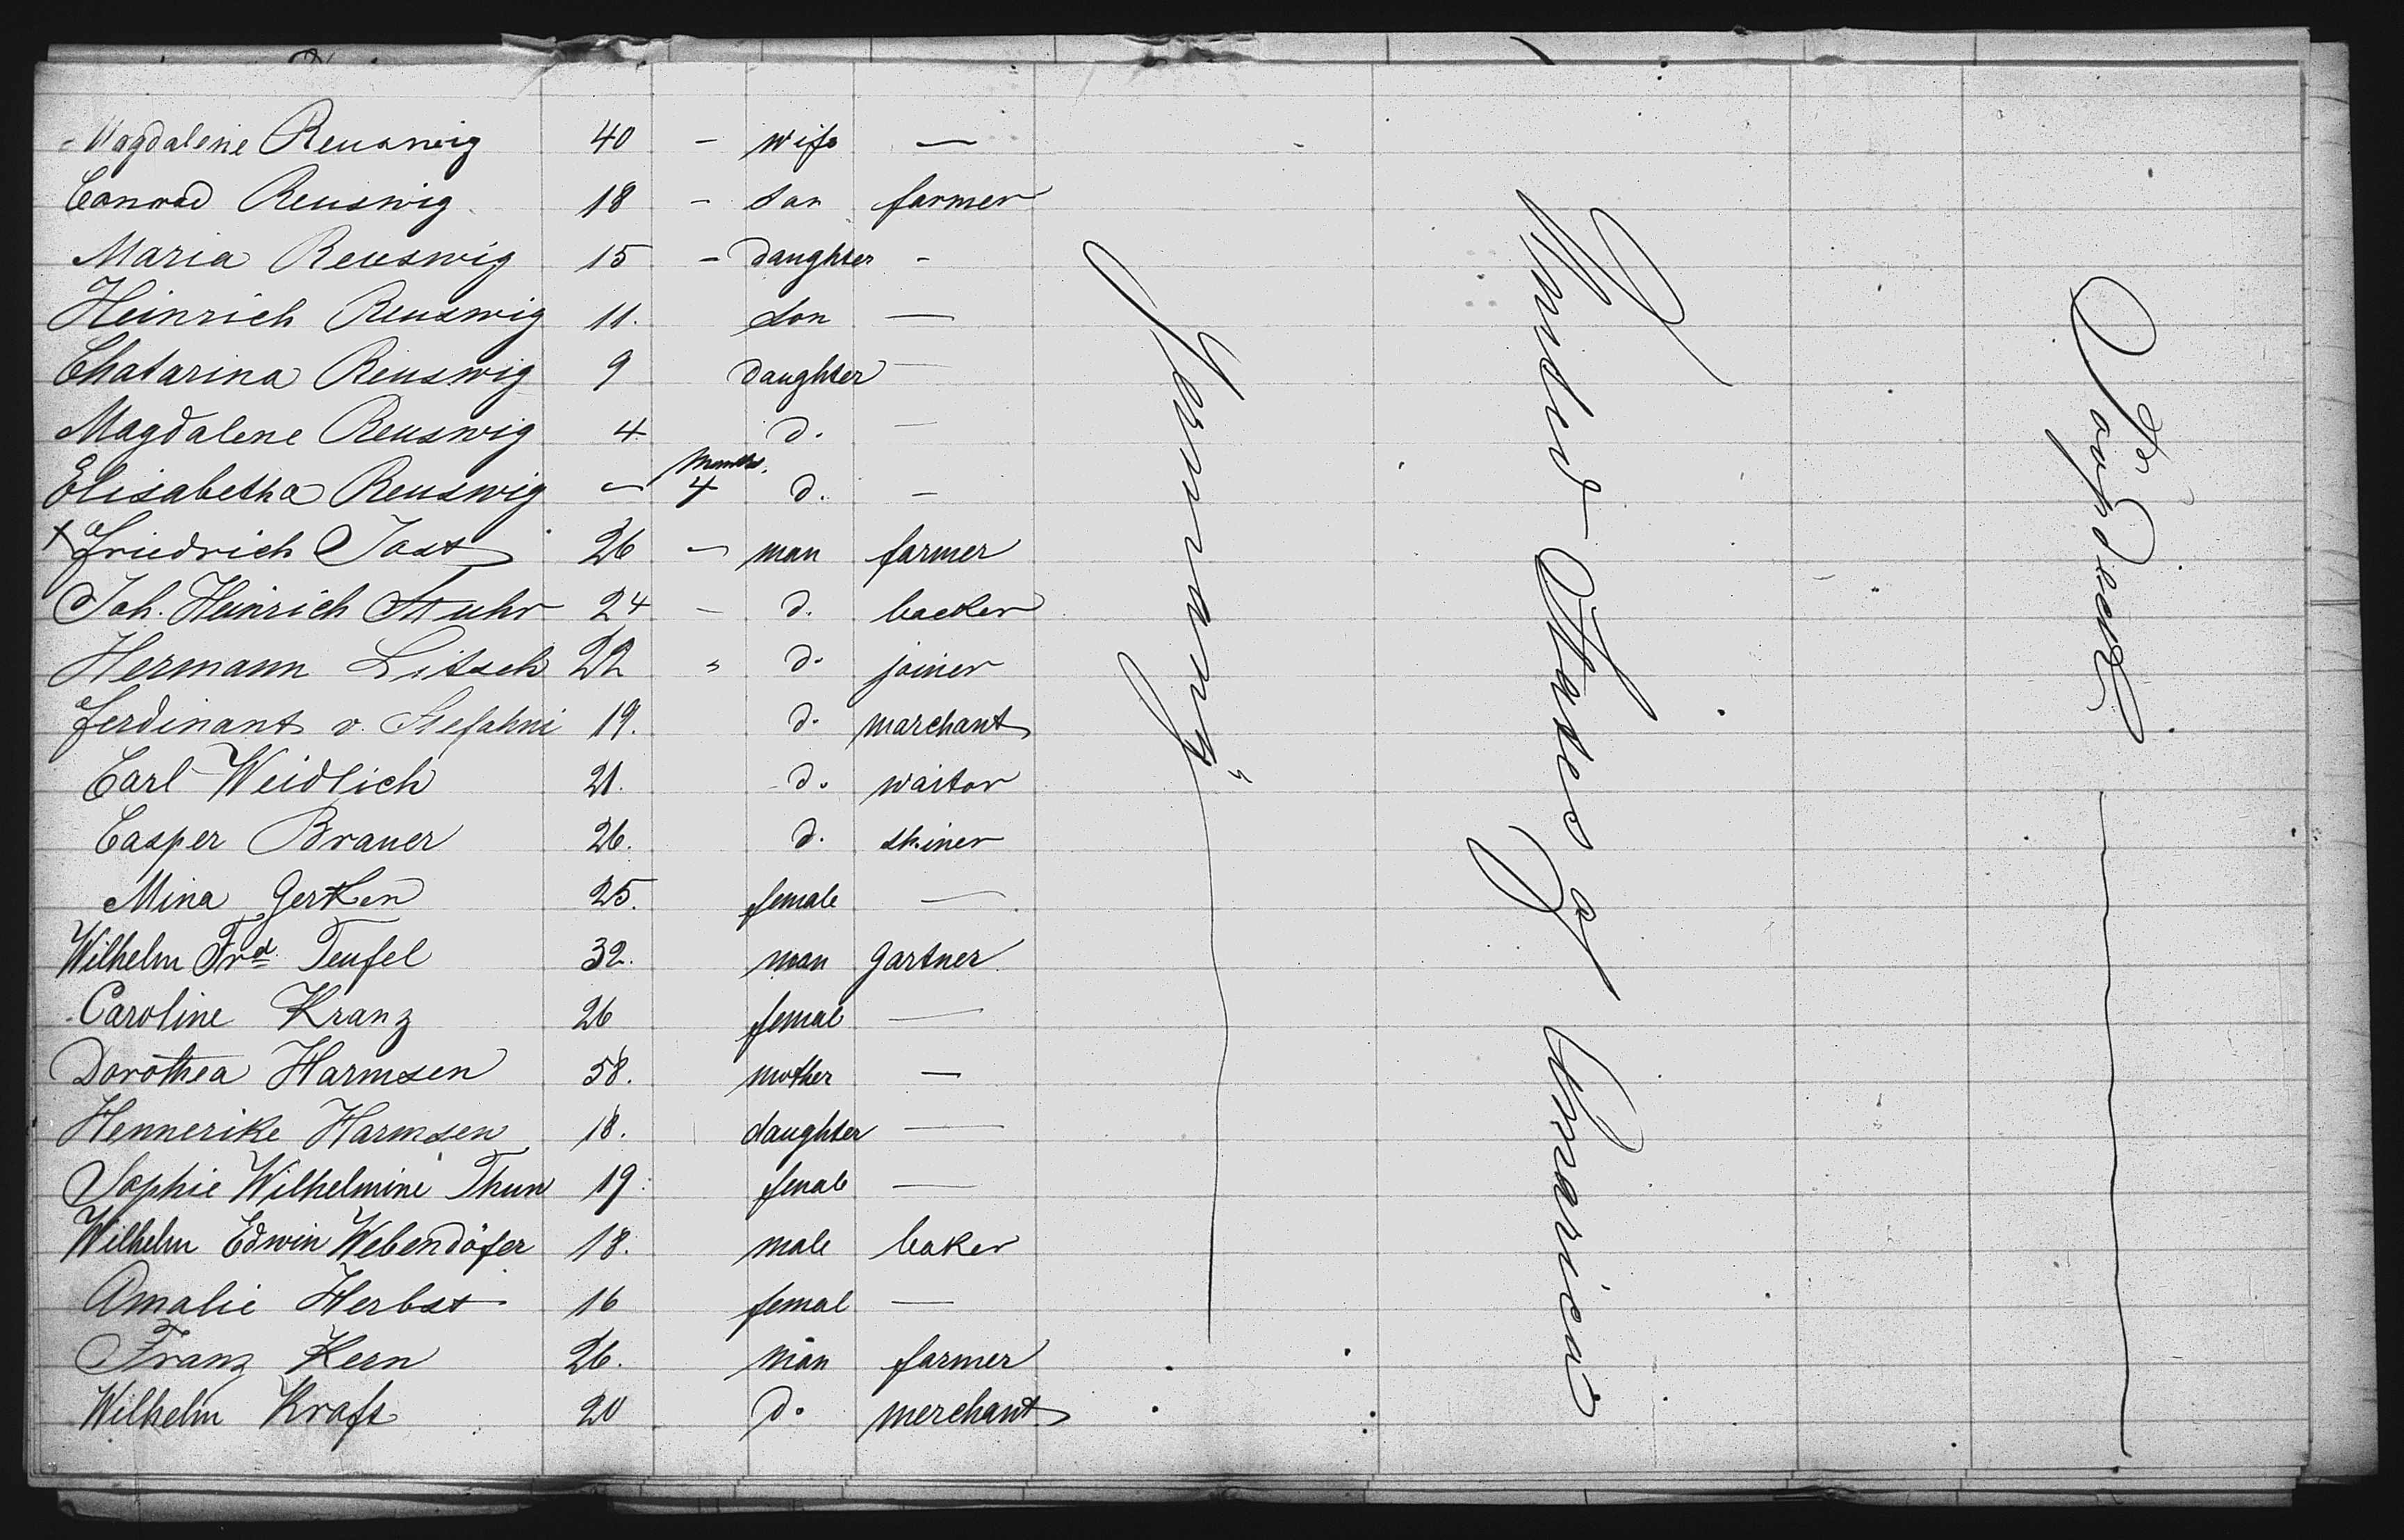 Magdalene Reuswig 40 - wife —
Conrad Reuswig 18 - son farmer
Maria Reuswig 15 - daughter -
Heinrich Reuswig 11. son —
Chatarina Reuswig 9 daughter —
Magdalene Reuswig 4 d. —
Elisabetha Reuswig - Months. 4 d. -
x Friedrich Jost 26 - man farmer
Joh. Heinrich Stuhr 24 - d. backer
Hermann Litsch 22 - d. joiner
Ferdinant v. Stefahni 19. d. marchant
Carl Weidlich 21. d. waitor
Casper Brauer 26. d. skiner
Mina Gerken 25. female —
Wilhelm Frd. Teufel 32. man gartner
Caroline Kranz 26 femal —
Dorothea Harmsen 58. mother —
Hennerike Harmsen 18. daughter —
Sophie Wilhelmine Thun 19. femal —
Wilhelm Edwin Webendöfer 18. male baker
Amalie Herbst 16 femal —
Franz Kern 26. man farmer
Wilhelm Kraft 20 d. merchant
Germany
United States of America